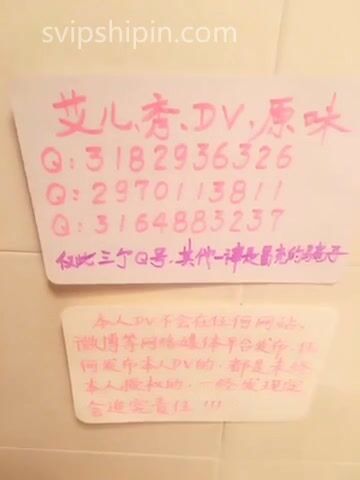 svipshipin.com
艾儿、秀、DV、原味
Q:3182936326
Q:2970113811
Q:3164883237
仅此三个Q号、其他一律是冒充的骗子
本人DV不会在任何网站、
微博等网络媒体平台发布、任
何发布本人DV的、都是未经
本人授权的、一经发现定
会追究责任!!!